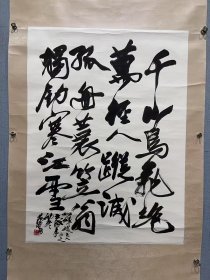 千山鸟飞绝
萬径人蹤滅
孤舟蓑笠翁
獨钓寒江雪